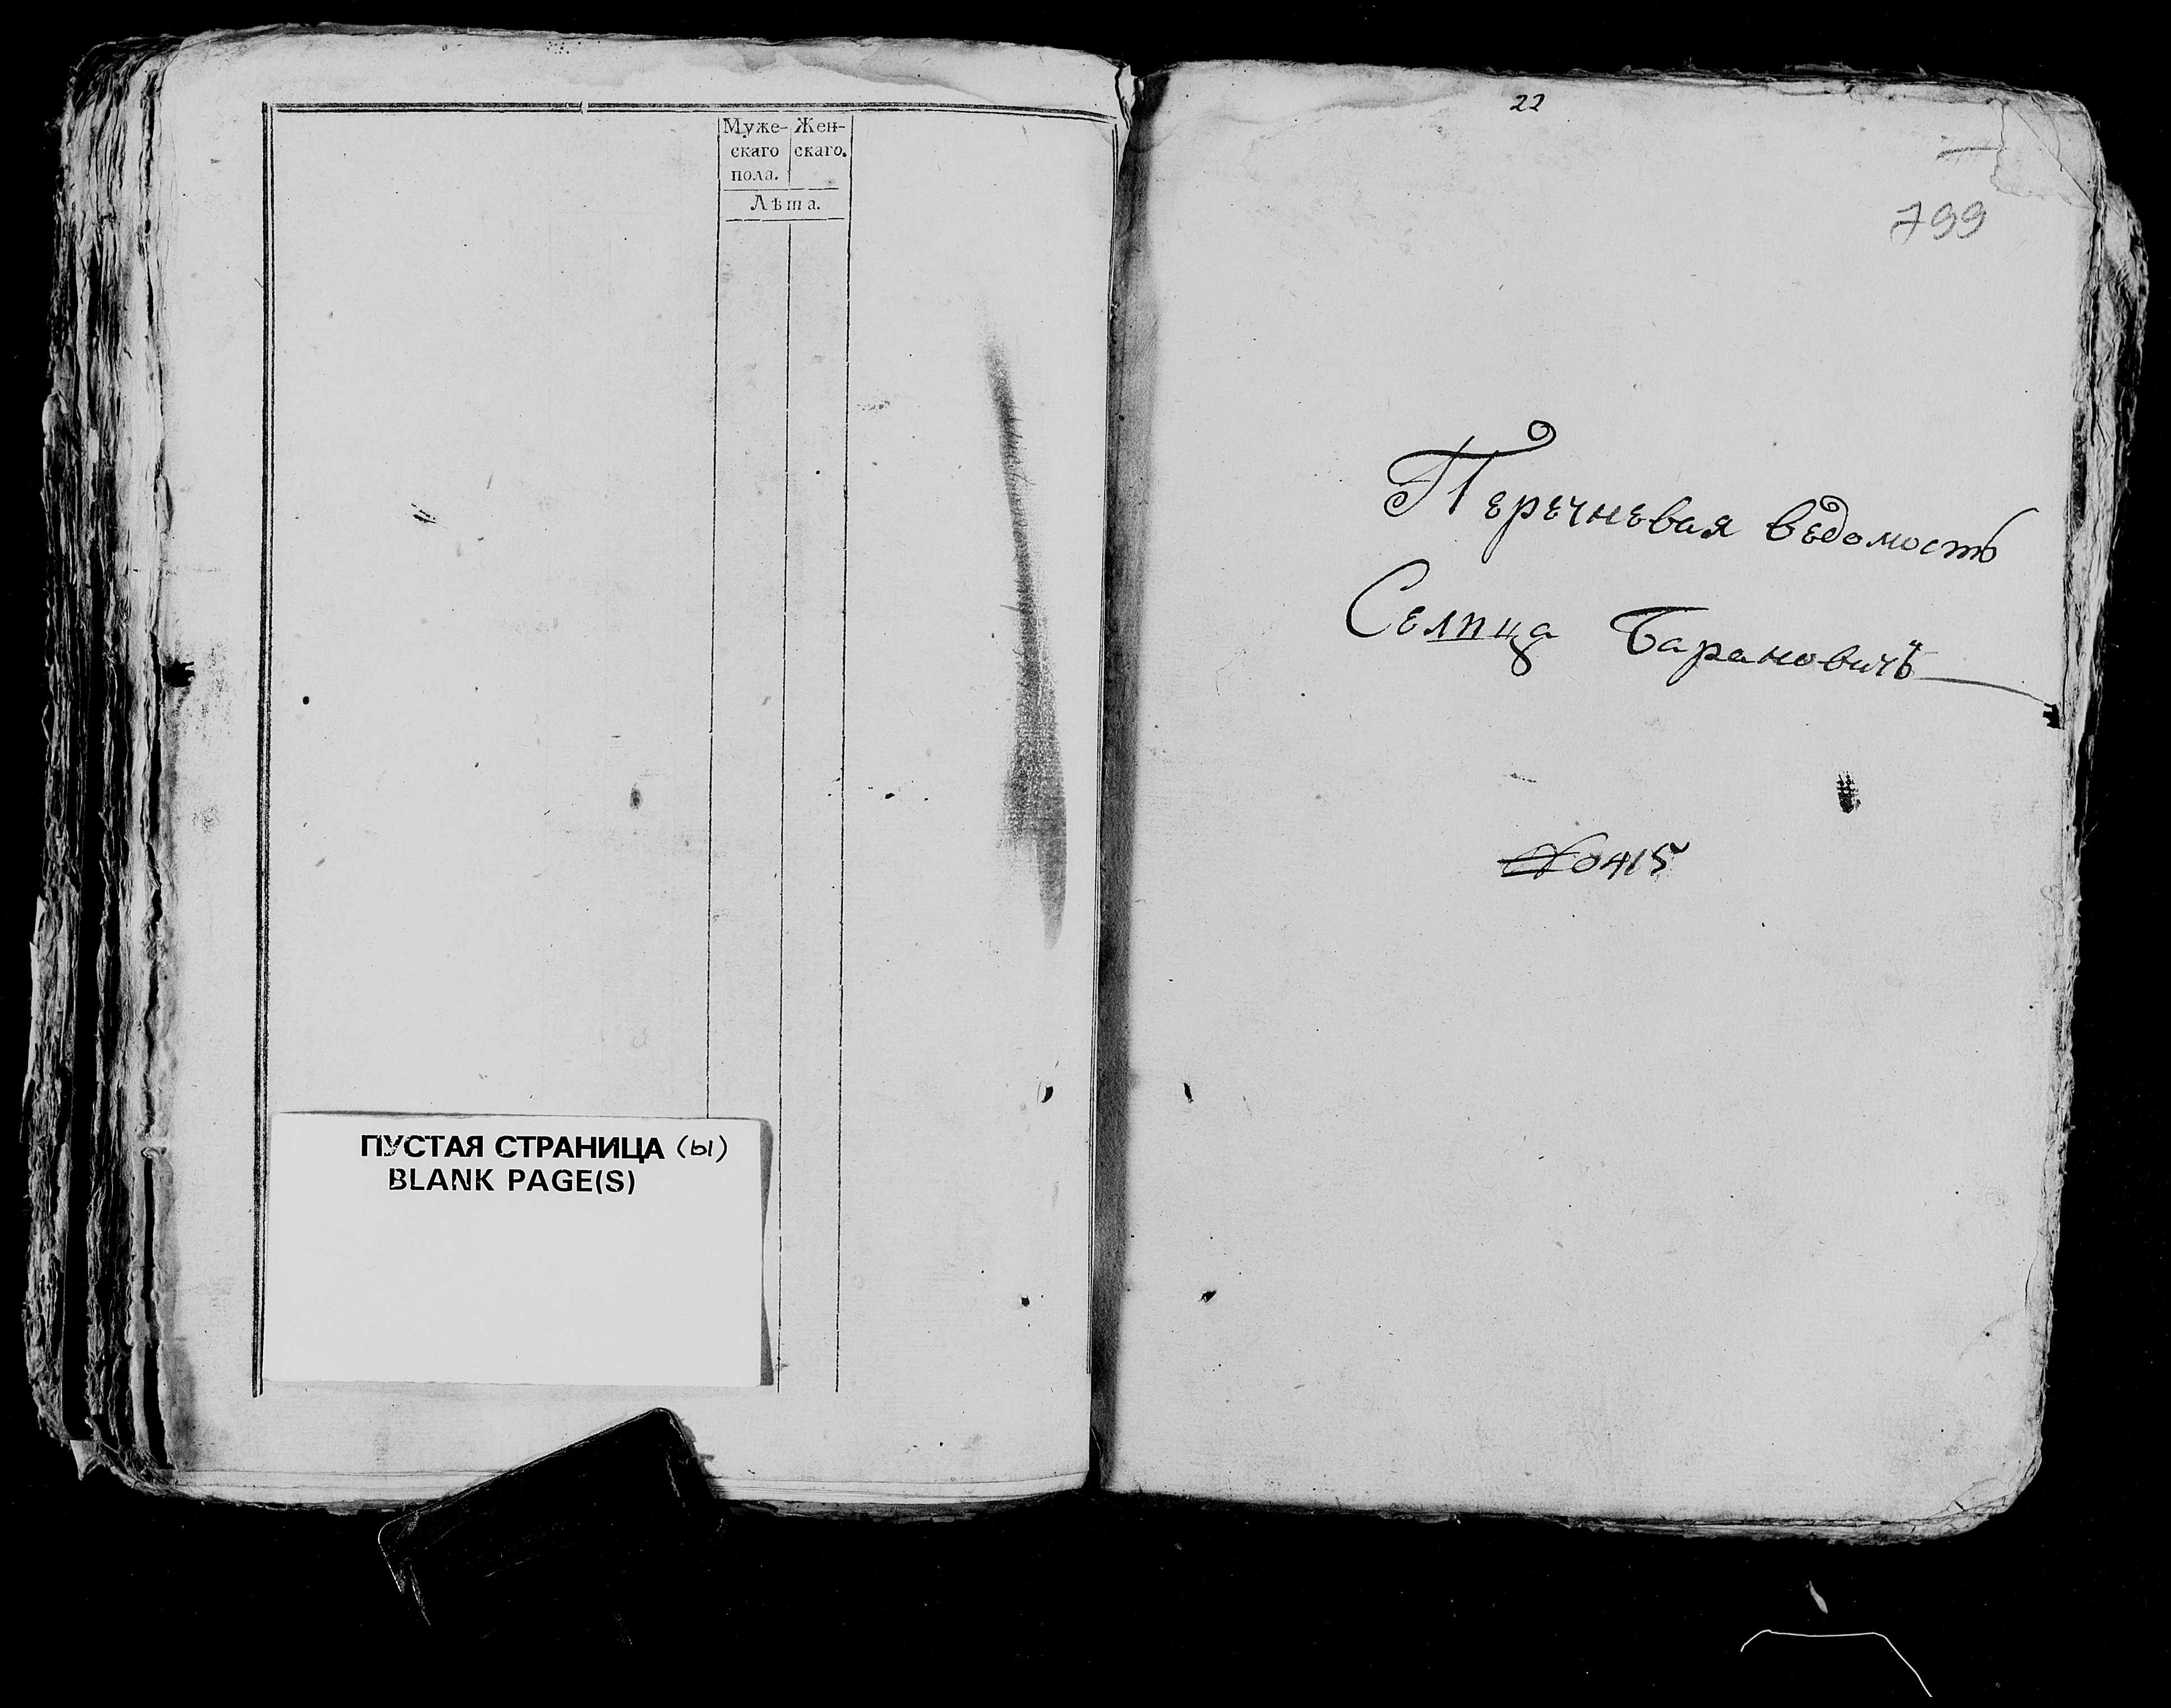 Муже-
скаго
пола.
Жен-
скаго.
Лѣта.
ПУСТАЯ СТРАНИЦА (ы)
BLANK PAGE(S)
22
799
Перечневая ведомость
Селица Барановичъ
№415